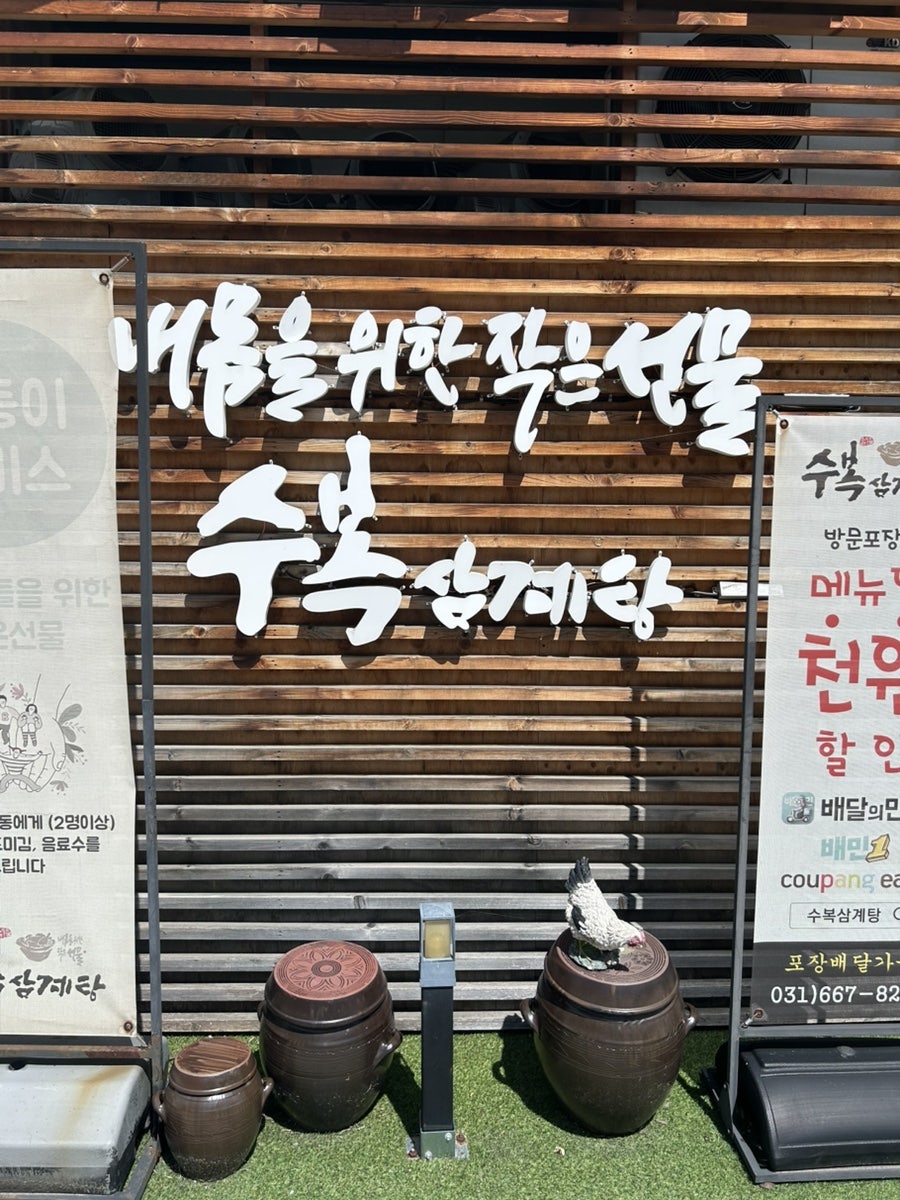 내몸을 위한 작은 선물
수복 삼계탕
둥이
이스
들을 위한
은선물
동에게 (2명이상)
드립니다
삼계탕
수복
방문포장
메뉴
천원
할인
배달의민
배민1
coupang ea
수복삼계탕
포장배달가
031)667-82
KD